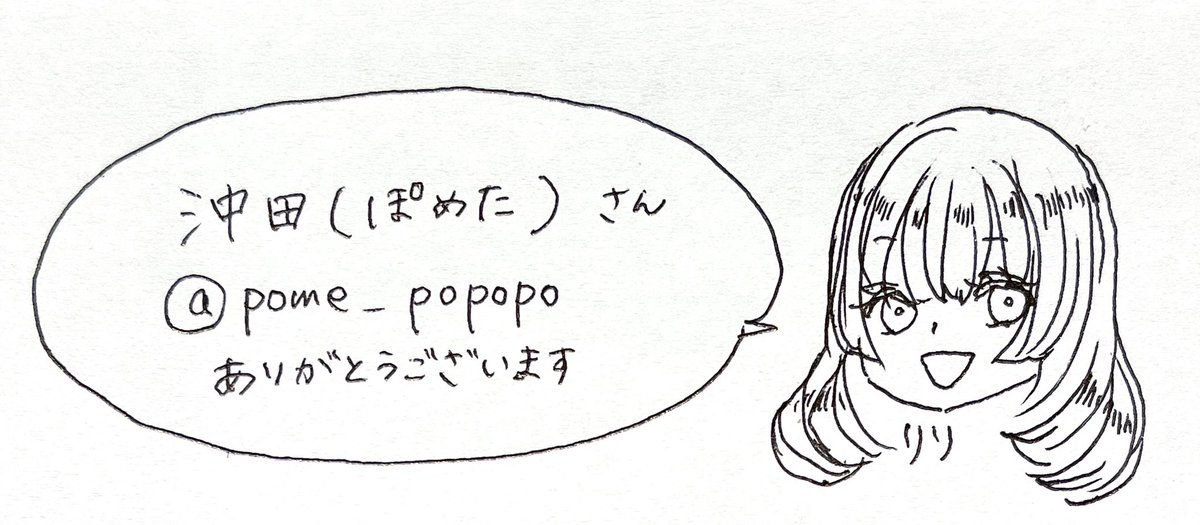 沖田(ぽめた)さん
@pome_popopo
ありがとうございます
リリ